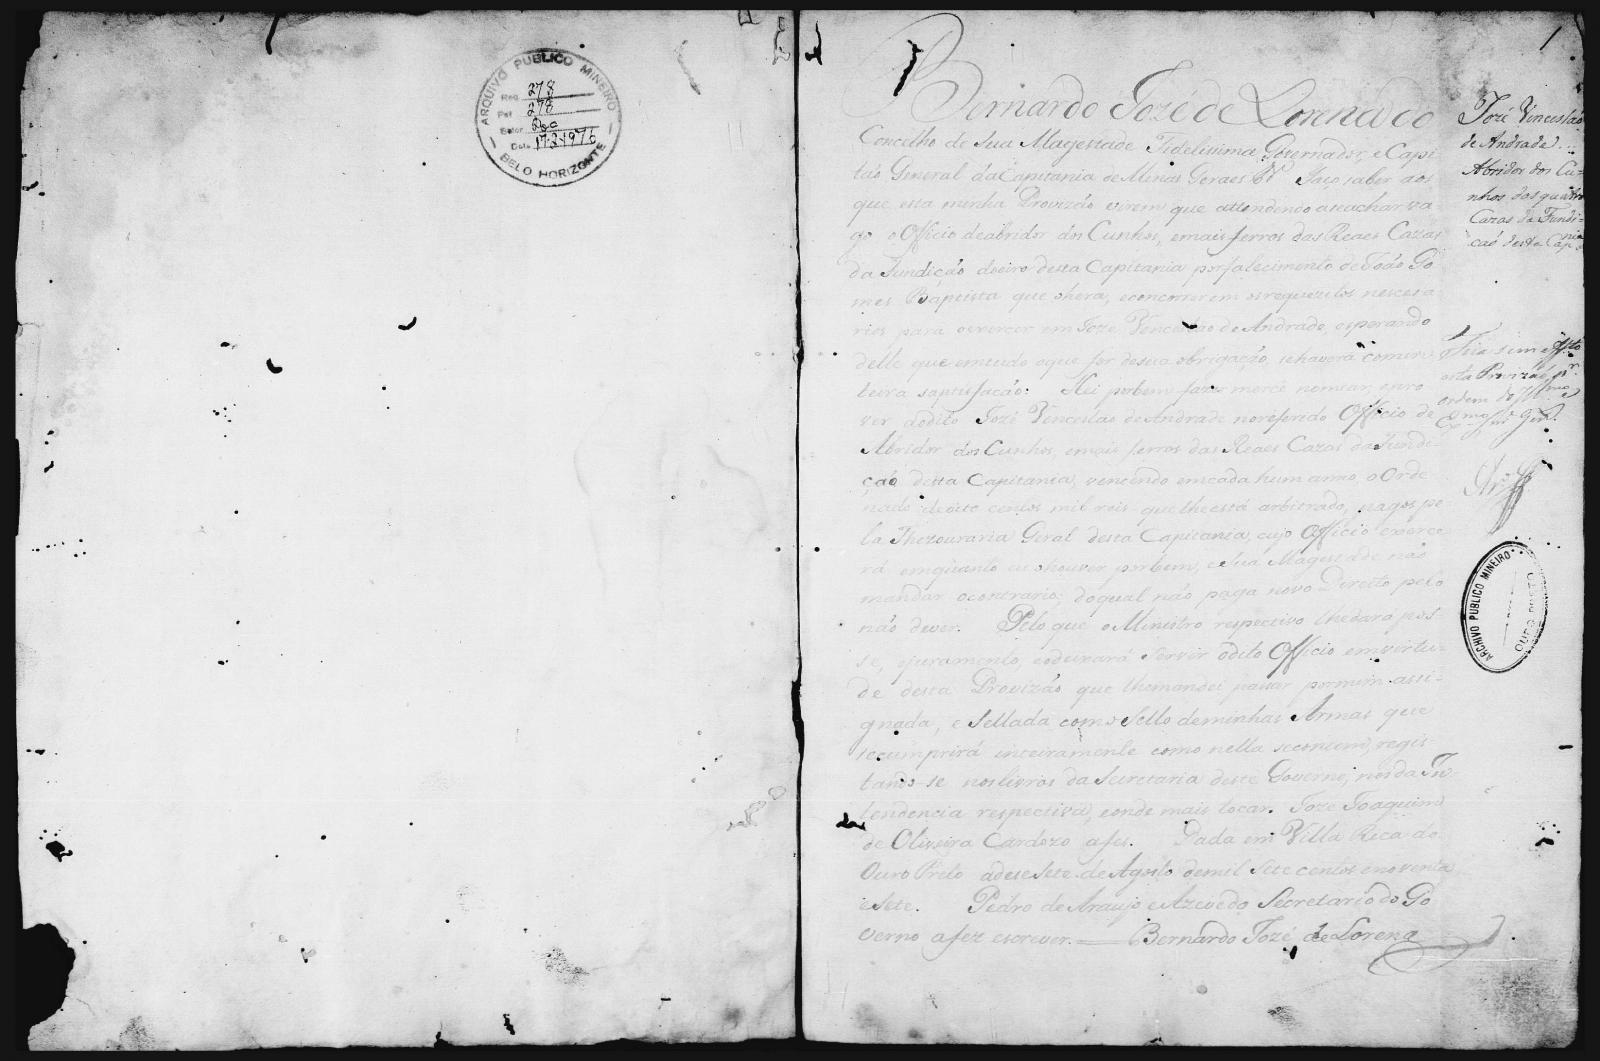 ARQUIVO PUBLICO MINEIRO
Reg. 278
Pat 278
Setor Doc
Data 17-2-1976
BELO HORIZONTE
1
Bernardo Joze de Lorena do
Concelho de Sua Magestade Fidelissima, Governador, e Capi
taõ General da Capitania de Minas Geraes &ª Faço saber aos
que esta minha Provizaõ virem que attendendo a se achar va
go o Officio de abridor dos Cunhos, e mais ferros das Reaes Cazas
da Fundiçaõ do oiro desta Capitania por falecimento de Joaõ Go
mes Baptista que o hera, e concorrerem os requezitos necesa
rios para o exercer em Joze Venceslao de Andrade, esperando
delle que em tudo o que for de sua obrigaçaõ, se haverá com in
teira satisfaçaõ: Hei por bem fazer mercê nomear, e pro
ver ao dito Jozé Venceslao de Andrade no referido Officio de
Abridor dos Cunhos, e mais ferros das Reaes Cazas da Fundi-
çaõ desta Capitania, vencendo em cada hum anno, o Orde
nado de oito centos mil reis que lhe está arbitrado, pagos pe
la Thezouraria Geral desta Capitania, cujo Officio exerce
rá emquanto eu o houver por bem, e Sua Magestade naõ
mandar o contrario; do qual naõ paga novo Direito pelo
naõ dever. Pelo que o Ministro respectivo lhe dara pos-
se, e juramento, e o deixará servir o dito Officio em virtu-
de desta Provizaõ que lhe mandei passar por mim assi-
gnada, e Sellada com o Sello de minhas Armas que
se cumprirá inteiramente como nella se contem, regis
tando-se nos livros da Secretaria deste Governo, nos da In
tendencia respectiva, e onde mais tocar. Joze Joaquim
de Oliveira Cardozo a fes. Dada em Villa Rica do
Ouro Preto a dese Sete de Agosto de mil Sete centos e noventa
e Sete. Pedro de Araujo e Azevedo Secretario do Go
verno a fez escrever. Bernardo Jozé de Lorena
Jozé Vincesláo
de Andrade
Abridor dos Cu-
nhos das quatro
Cazas da Fundi-
çaõ desta Cap.nia
esta Provizaõ p.r
ordem do Ill.mo e
Ex.mo Snr. Gen.l
ARCHIVO PUBLICO MINEIRO
OURO PRETO